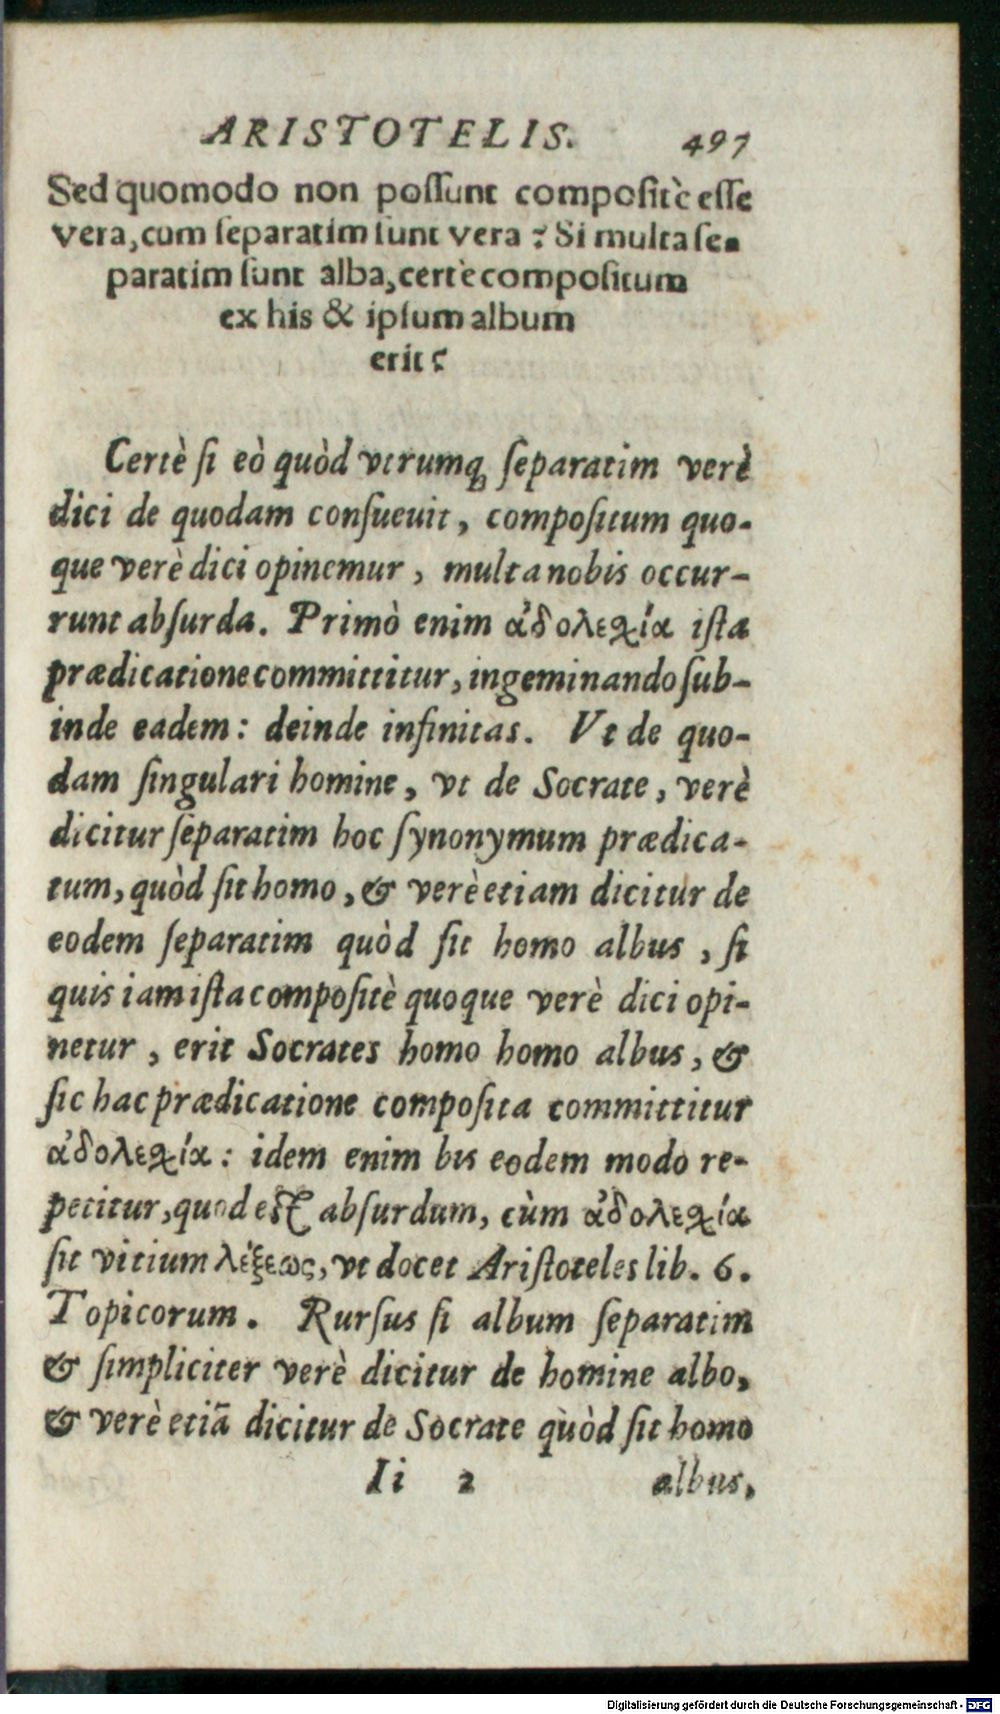 ARISTOTELIS. 497
Sed quomodo non possunt compositè esse
vera, cum separatim sunt vera ? Si multa se-
paratim sunt alba, certè compositum
ex his & ipsum album
erit ?
Certè si eò quòd vtrumq; separatim verè
dici de quodam consueuit, compositum quo-
que verè dici opinemur, multa nobis occur-
runt absurda. Primò enim ἀδολεχία ista
prædicatione committitur, ingeminando sub-
inde eadem: deinde infinitas. Vt de quo-
dam singulari homine, vt de Socrate, verè
dicitur separatim hoc synonymum prædica-
tum, quòd sit homo, & verè etiam dicitur de
eodem separatim quòd sit homo albus, si
quis iam ista compositè quoque verè dici opi-
netur, erit Socrates homo homo albus, &
sic hac prædicatione composita committitur
ἀδολεχία: idem enim bis eodem modo re-
petitur, quod est absurdum, cùm ἀδολεχία
sit vitium λέξεως, vt docet Aristoteles lib. 6.
Topicorum. Rursus si album separatim
& simpliciter verè dicitur de homine albo,
& verè etiā dicitur de Socrate quòd sit homo
Ii 2 albus,
Digitalisierung gefördert durch die Deutsche Forschungsgemeinschaft - DFG